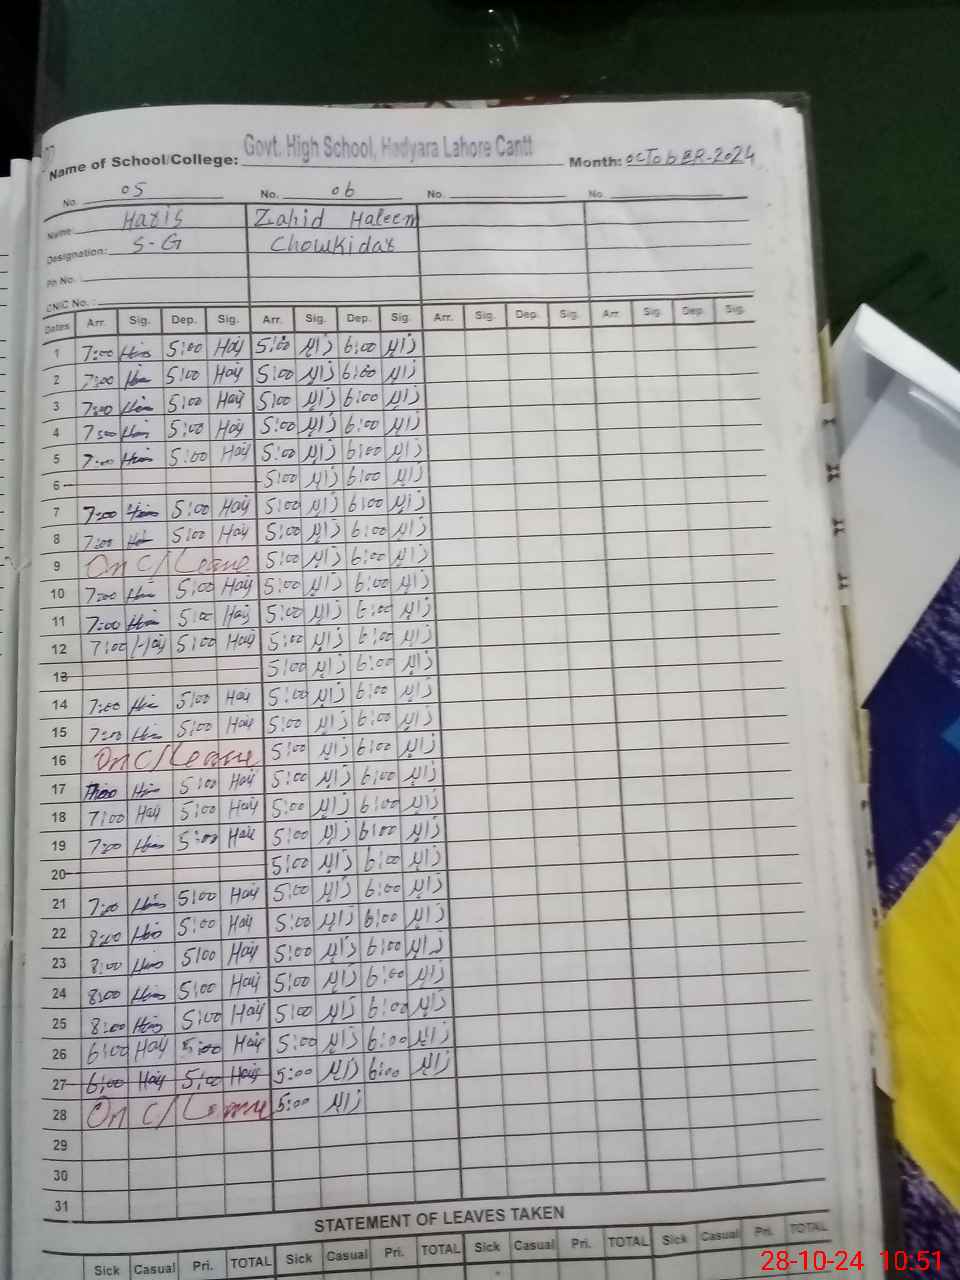 Govt. High School, Hadyara Lahore Cantt
Name of School/College: Month: OCTOBER-2024
No. 05 No. 06 No. No.
Name: Haris Zahid Haleem
Designation: S-G Chowkidar
Ph No.
CNIC No. :
Dates Arr. Sig. Dep. Sig. Arr. Sig. Dep. Sig. Arr. Sig. Dep. Sig. Arr. Sig. Dep. Sig.
1 7:00 5:00 5:00 زاہد 6:00 زاہد
2 7:00 5:00 5:00 زاہد 6:00 زاہد
3 7:00 5:00 5:00 زاہد 6:00 زاہد
4 7:00 5:00 5:00 زاہد 6:00 زاہد
5 7:00 5:00 5:00 زاہد 6:00 زاہد
6 5:00 زاہد 6:00 زاہد
7 7:00 5:00 5:00 زاہد 6:00 زاہد
8 7:00 5:00 5:00 زاہد 6:00 زاہد
9 On C/Leave 5:00 زاہد 6:00 زاہد
10 7:00 5:00 5:00 زاہد 6:00 زاہد
11 7:00 5:00 5:00 زاہد 6:00 زاہد
12 7:00 5:00 5:00 زاہد 6:00 زاہد
13 5:00 زاہد 6:00 زاہد
14 7:00 5:00 5:00 زاہد 6:00 زاہد
15 7:00 5:00 5:00 زاہد 6:00 زاہد
16 On C/Leave 5:00 زاہد 6:00 زاہد
17 5:00 5:00 زاہد 6:00 زاہد
18 7:00 5:00 5:00 زاہد 6:00 زاہد
19 7:00 5:00 5:00 زاہد 6:00 زاہد
20 5:00 زاہد 6:00 زاہد
21 7:00 5:00 5:00 زاہد 6:00 زاہد
22 8:00 5:00 5:00 زاہد 6:00 زاہد
23 8:00 5:00 5:00 زاہد 6:00 زاہد
24 8:00 5:00 5:00 زاہد 6:00 زاہد
25 8:00 5:00 5:00 زاہد 6:00 زاہد
26 6:00 5:00 5:00 زاہد 6:00 زاہد
27 6:00 5:00 5:00 زاہد 6:00 زاہد
28 On C/Leave 5:00 زاہد
29
30
31
STATEMENT OF LEAVES TAKEN
Sick Casual Pri. TOTAL Sick Casual Pri. TOTAL Sick Casual Pri. TOTAL Sick Casual Pri. TOTAL
28-10-24 10:51